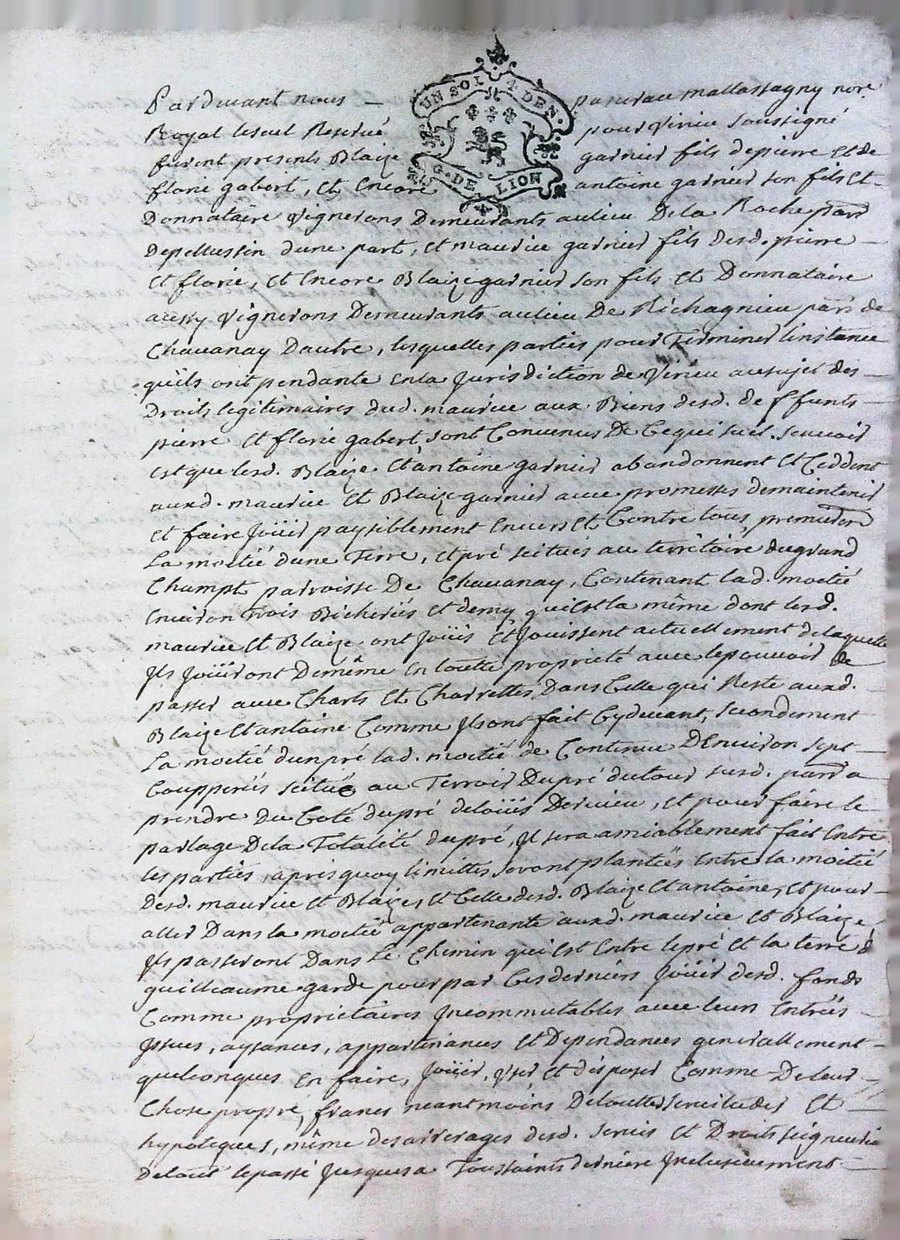 UN SOL 4 DEN.
G. DE LION
Pardevant nous — mallassagny nore
Royal Reservé pour virieu soussigné
furent presents Blaize garnier fils depierre et de
florie gabert, et encore antoine garnier son fils et
Donnataire vignerons Demeurants aulieu Dela Roche parr
depellussin dune part, et maurice garnier fils desd. pierre
et florie, et encore Blaize garnier son fils et Donnataire
aussy vignerons Demeurants aulieu De Richagnieu parr de
Chavanay Dautre, lesquelles parties pour Terminer linstance
quils ont pendante enla Jurisdiction de Virieu ausujet des
Droits legitimaires dud. maurice aux Biens desd. deffunts
pierre et florie gabert, sont Convenus De Cequi suit, scavoir
est que lesd. Blaize et antoine garnier abandonnent et Ceddent
auxd. maurice et Blaize garnier avec promesses demaintenir
et faire Joüir paysiblement envers et Contre tous, premierem
La moetié dune Terre, et pré scitués au territoire dugrand
Champt parroisse De Chavanay, Contenant lad. moetié
environ Trois Bicherées et demy quiest la même dont lesd.
maurice et Blaize ont Joüis et Jouissent actuellement delaquelle
Jls Joüiront Demême en toutte proprieté avec lepouvoir de
passer avec Charts et Charrettes, Dans Celle qui Reste auxd.
Blaize et antoine Comme Jlsont fait Cydevant, secondement
La moetié dunpré lad. moetié de Contenue DEnviron sept
Coupperés scitué au Terroir Dupré dutour susd. parr a
prendre du Coté dupré delouïs Dervieu, et pour faire le
partage Dela Totalité dupré, Jl sera amiablement fait Entre
les parties, apres quoy limittes seront plantées entre la moetié
Desd. maurice et Blaize, et Celle desd. Blaize et antoine, et pour
aller Dans la moetié appartenante auxd. maurice et Blaize,
Jls passeront Dans Le Chemin quiest entre lepré et la terre d
guilleaume garde pour par Ces derniers Joüir desd. fonds
Comme proprietaires Jncommutables avec leurs entrées
Jssues, aysances, appartenances et Dependances generallement
quelconques en faire, Joüir, user et disposer Comme Deleur
Chose propre, francs neantmoins Detouttes servitudes et
hypoteques, même des arrerages desd. servis et Droits seigneuria
detout lepassé Jusquesa Toussaints derniere Jnclusivement